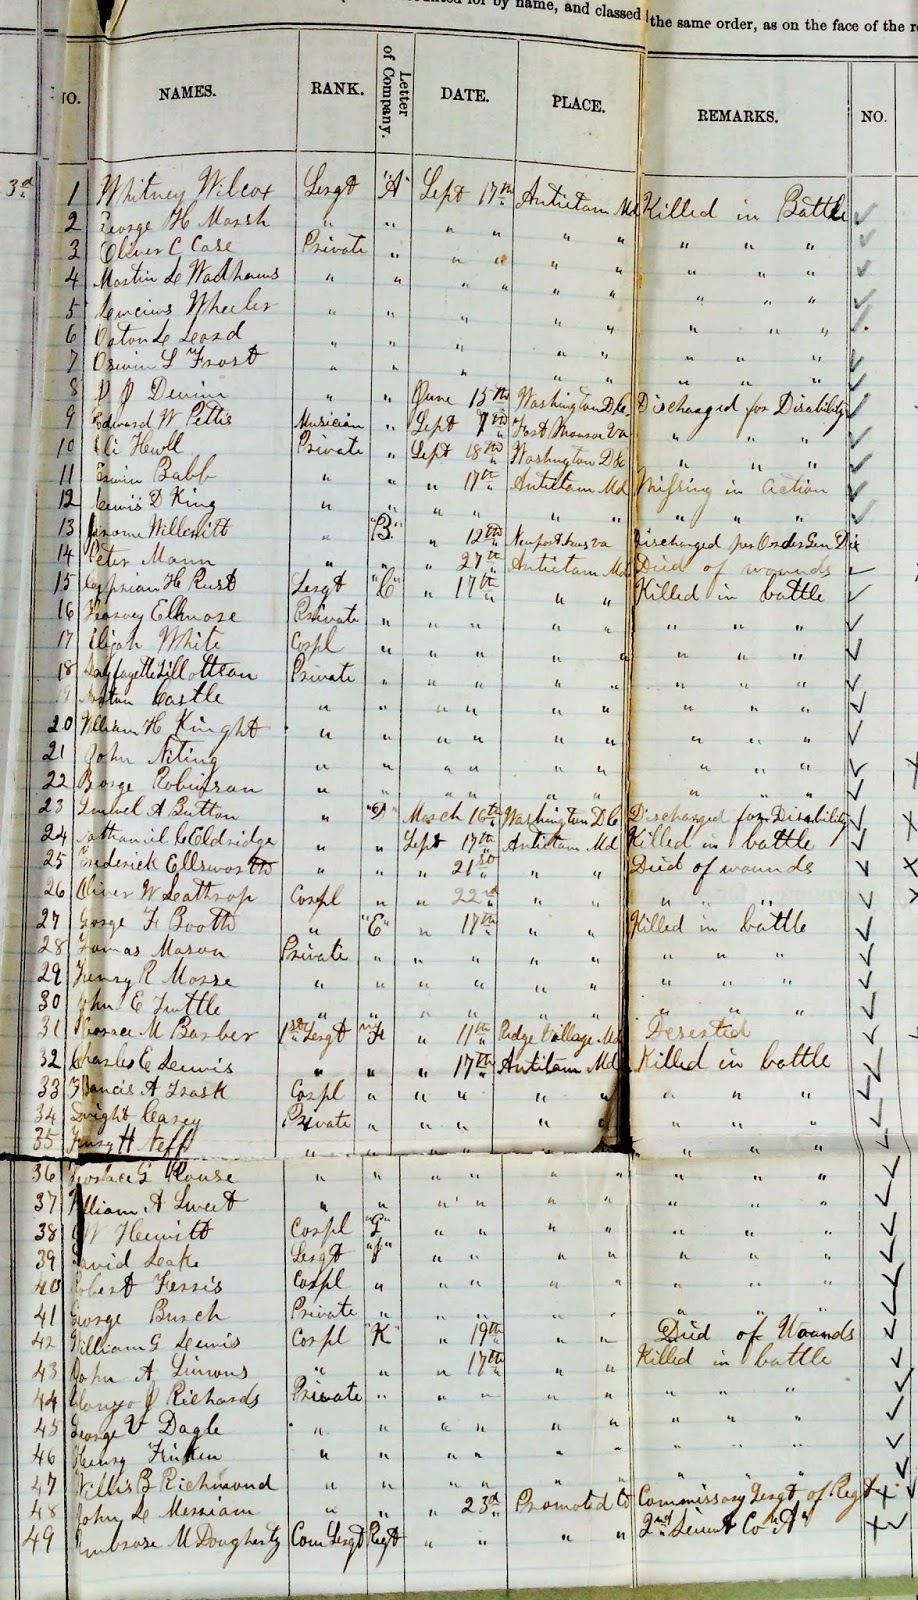 for by name, and classed the same order, as on the face of the
NO. NAMES. RANK. Letter of Company. DATE. PLACE. REMARKS. NO.
3d 1 Whitney Wilcox Sergt "A" Sept 17th Antietam Md Killed in Battle
2 George H Marsh " " " " " " " " "
3 Oliver C Case Private " " " " " " " "
4 Martin L Wadhams " " " " " " " " "
5 Wheeler " " " " " " " " "
6 " " " " " " " " "
7 Orwin L Frost " " " " " " " " "
8 Devine " " June 15th Washington D.C. Discharged for Disability
9 Edward W Pettis Musician " Sept Fort Monroe Va " " "
10 Eli Private " Sept 18th Washington D C " " "
11 Erwin Babb " " " 17th Antietam Md Missing in action
12 Lewis D King " " " " " " " " "
13 Jerome " "B" " 12th Newport News Va Discharged per Order Gen Dix
14 Peter Mann " " " 27th Antietam Md Died of wounds
15 H Rust Sergt "C" " 17th " " Killed in battle
16 Private " " " " " " " "
17 Elijah White Corpl " " " " " " " "
18 Private " " " " " " " "
19 Castle " " " " " " " " "
20 William H Knight " " " " " " " " "
21 John " " " " " " " " "
22 George Robinson " " " " " " " " "
23 Lemuel A Button " "D" March 16th Washington D C Discharged for Disability
24 Nathaniel C Eldridge " " Sept 17th Antietam Md Killed in battle
25 Frederick Ellsworth " " " 21st " " Died of wounds
26 Oliver W Leathrop Corpl " " 22nd " " " " "
27 George F Booth " "E" " 17th " " Killed in battle
28 Mason Private " " " " " " " "
29 Henry R Morse " " " " " " " " "
30 John E Tuttle " " " " " " " " "
31 Horace M Barber 1st Sergt "F" " 11th Ridge Village Md Deserted
32 Charles E Lewis " " " 17th Antietam Md Killed in battle
33 Francis A Trask Corpl " " " " " " " "
34 Dwight Carey Private " " " " " " " "
35 H Neff " " " " " " " " "
36 Horace G Rouse " " " " " " " " "
37 William A Sweet " " " " " " " " "
38 W Hewitt Corpl "G" " " " " " " "
39 David Lake Sergt "I" " " " " " " "
40 Robert Ferris Corpl " " " " " " " "
41 George Burch Private " " " " " " " "
42 William G Lewis Corpl "K" " 19th " " Died of Wounds
43 John A Simons " " " 17th " " Killed in battle
44 Alonzo J Richards Private " " " " " " " "
45 George V Dagle " " " " " " " " "
46 Henry " " " " " " " " "
47 Willis B Richmond " " " " " " " " "
48 John L Merriam " " " 23d Promoted to Commissary Sergt of Regt
49 Ambrose M Dougherty Com Sergt Regt " " " " 2nd Lieut Co "A"